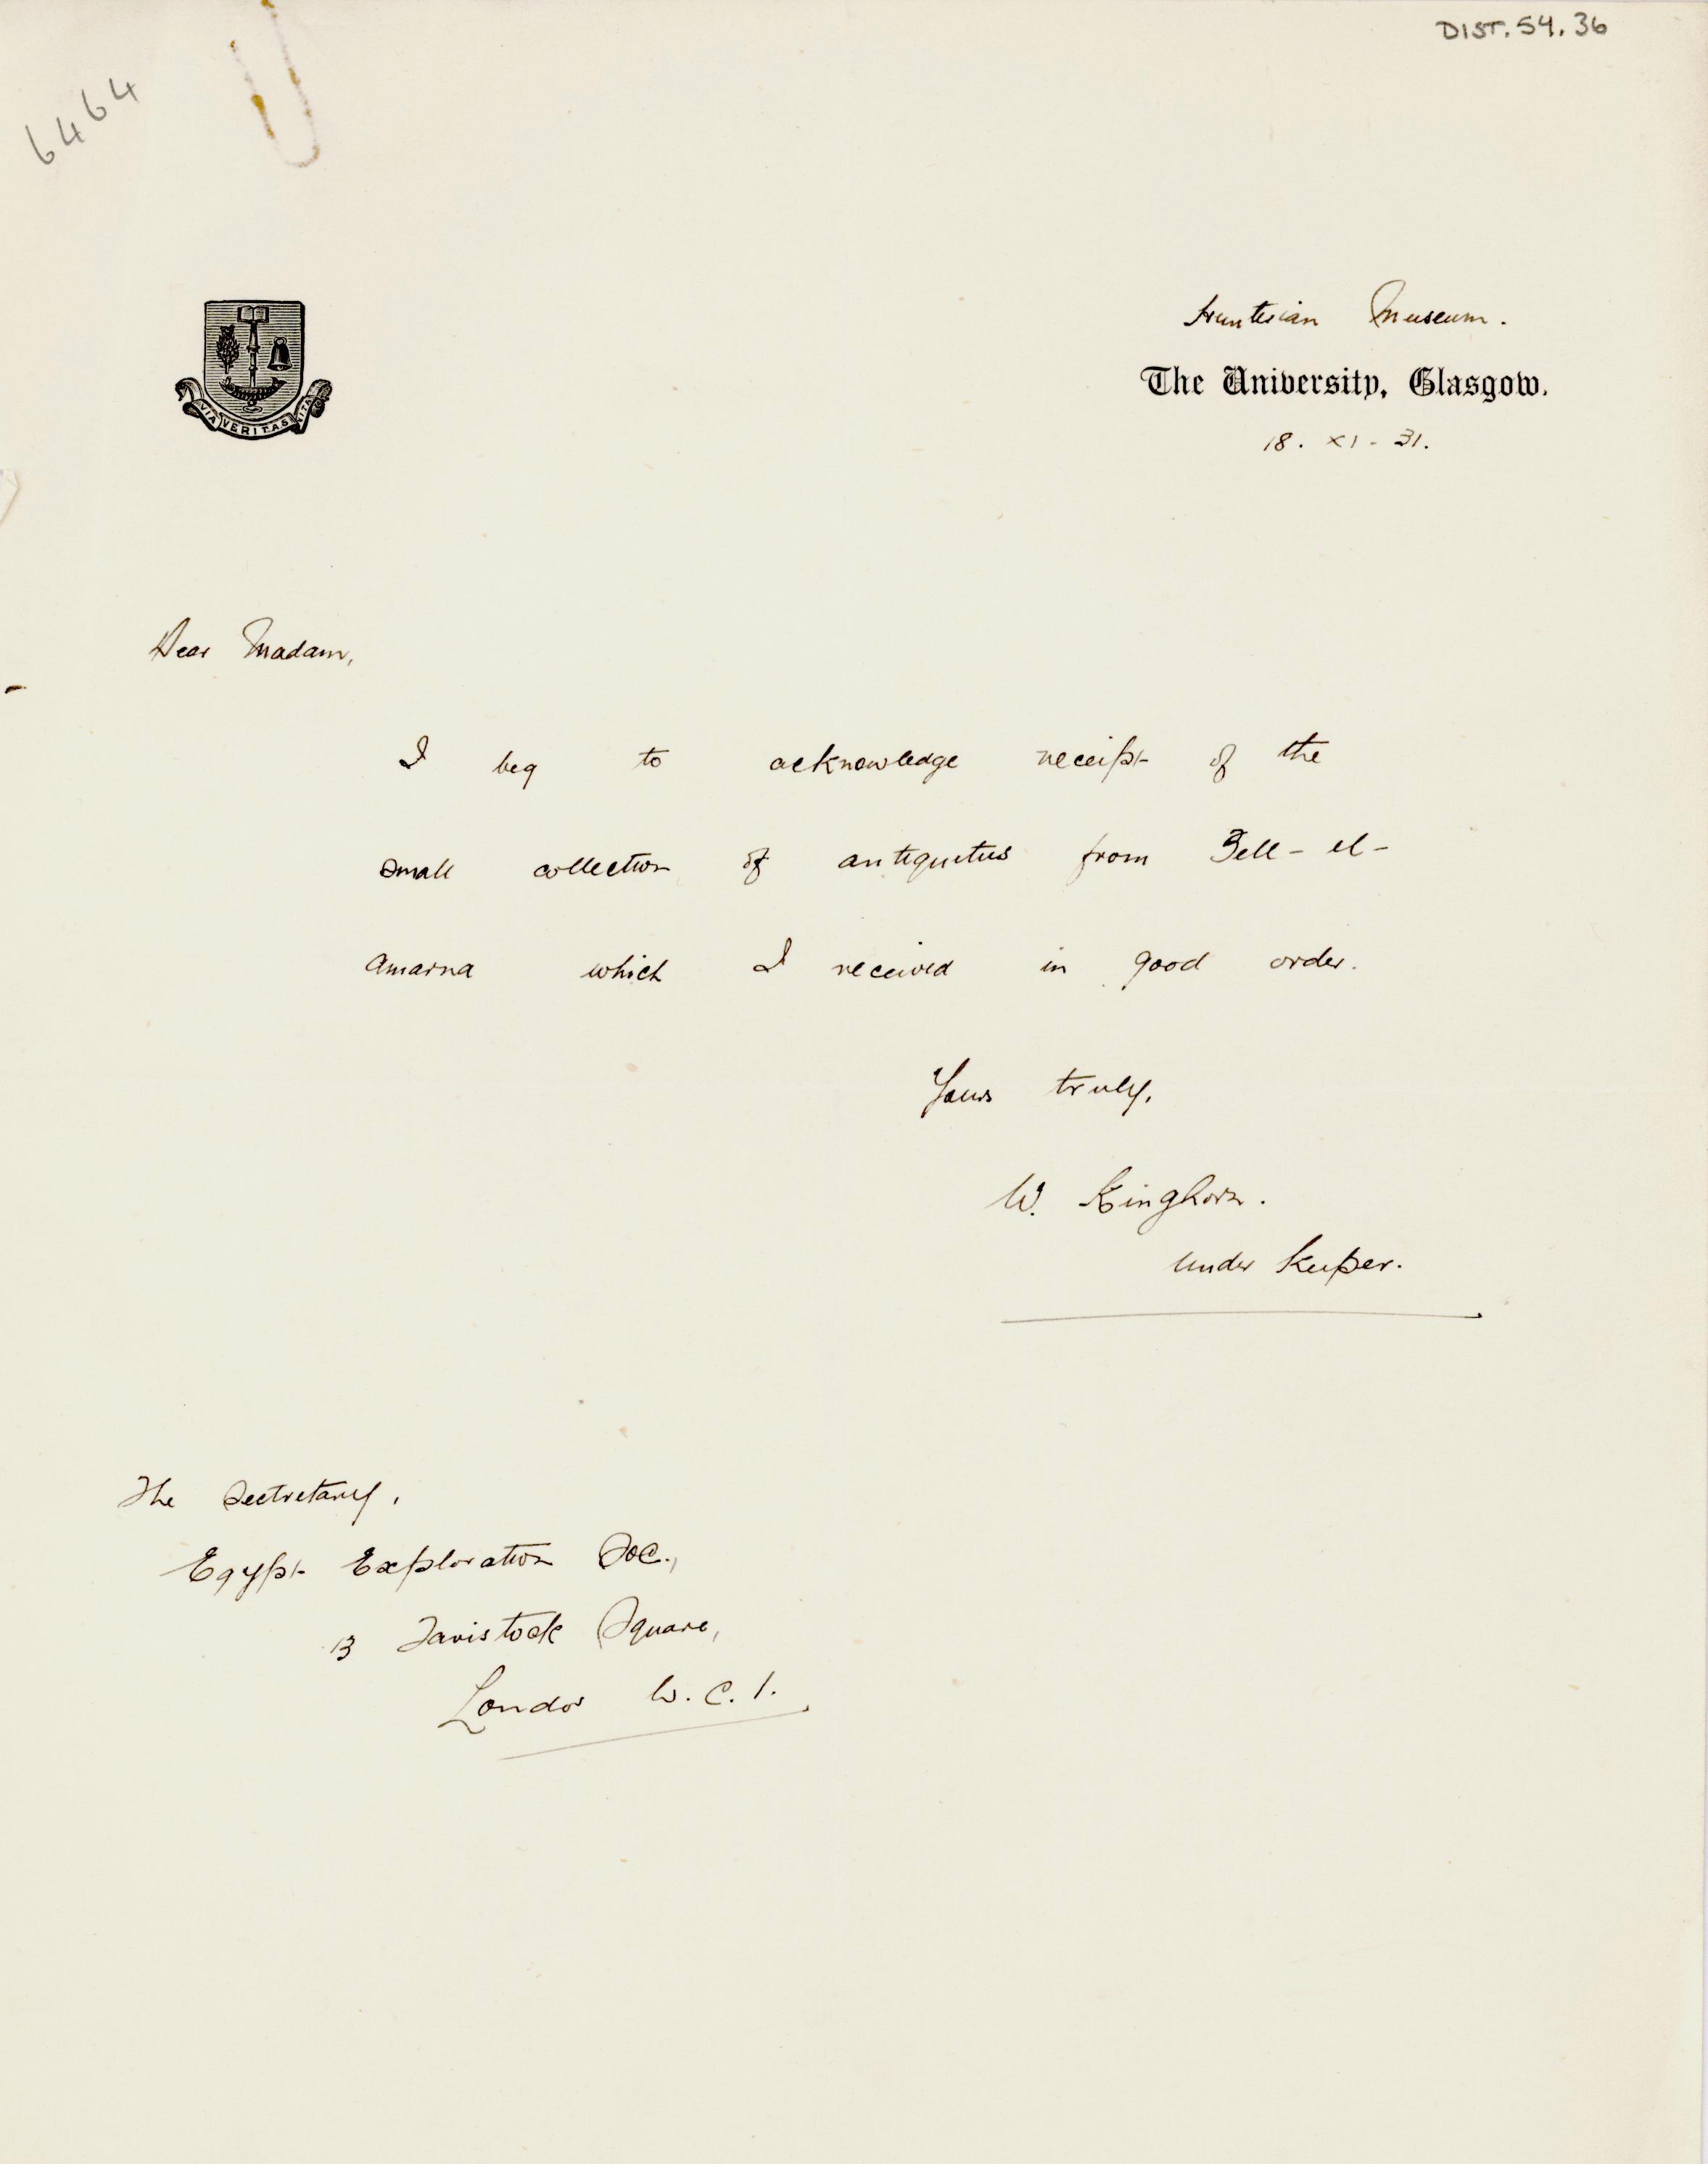 DIST. 54. 36
6464
Hunterian Museum.
The University, Glasgow.
18. XI - 31.
VIA VERITAS VITA
Dear Madam,
I beg to acknowledge receipt of the
small collection of antiquities from Tell-el-
Amarna which I received in good order.
Yours truly,
W. Kinghorn.
Under Keeper.
The Secretary,
Egypt Exploration Soc.,
13 Tavistock Square,
London W.C.1.